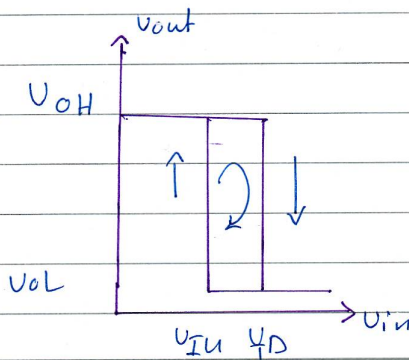 Vout
VOH
VOL
VIU VID
Vin